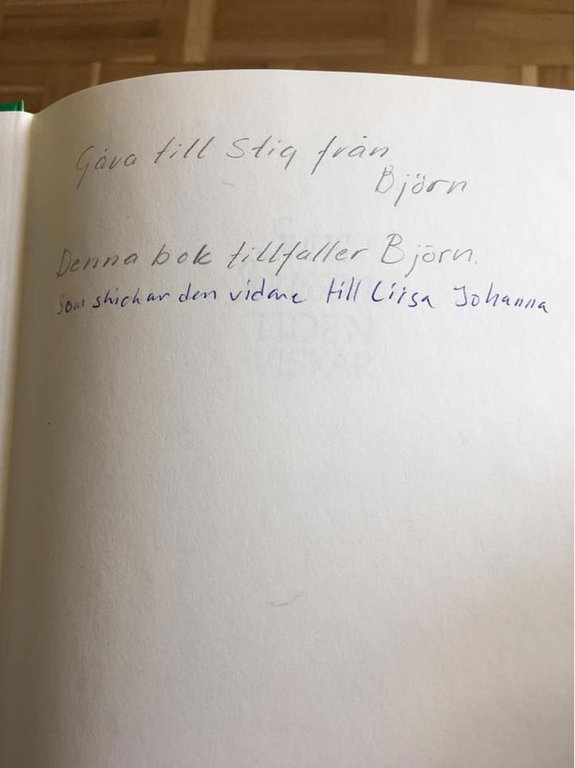 Gåva till Stig från
Björn
Denna bok tillfaller Björn.
Som skickar den vidare till Liisa Johanna
TIDEN
VISKAR